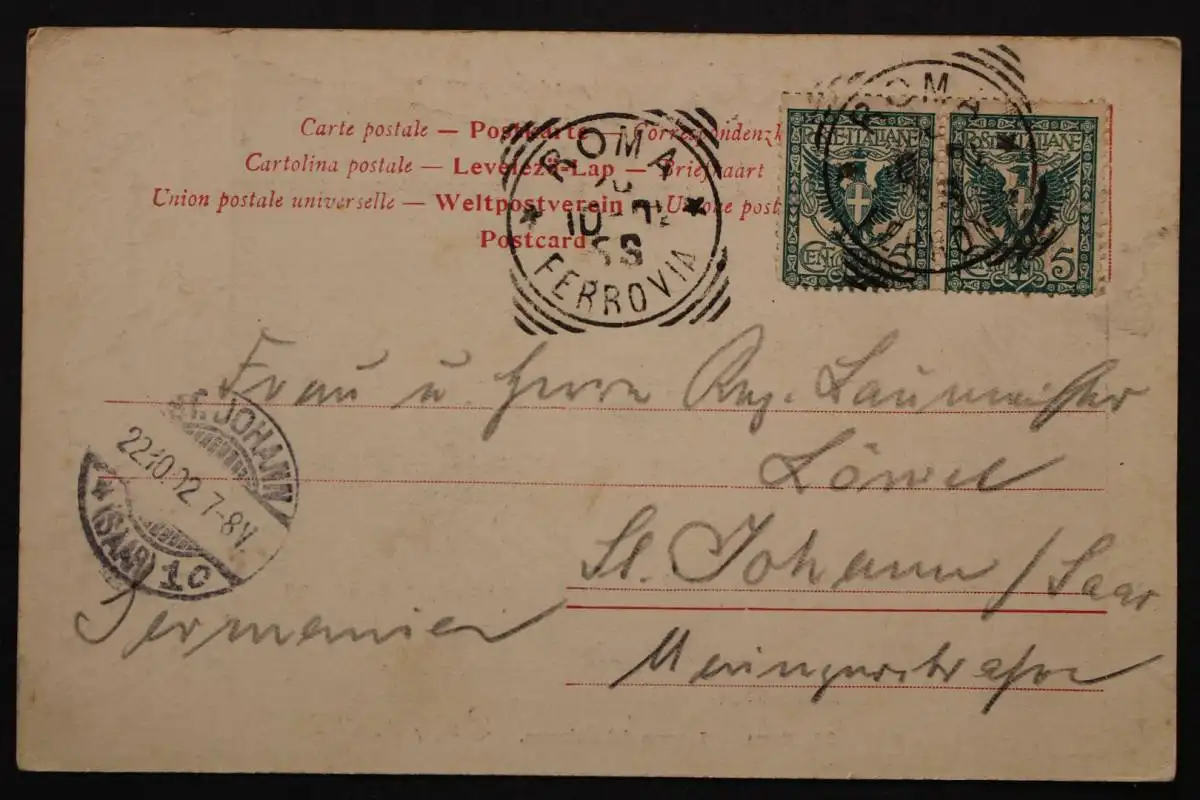 Carte postale — Postkarte — Correspondenzk
Cartolina postale — Levelező-Lap — Briefkaart
Union postale universelle — Weltpostverein — Unione post
Postcard
ROMA
10
FERROVIA
ROMA
POSTE ITALIANE
CENT. 5
POSTE ITALIANE
CENT. 5
Frau u. Herrn Reg. Baumeister
Löwel
St. Johann / Saar
Germanien
ST. JOHANN
22.10.02 7-8V.
* (SAAR) 1c